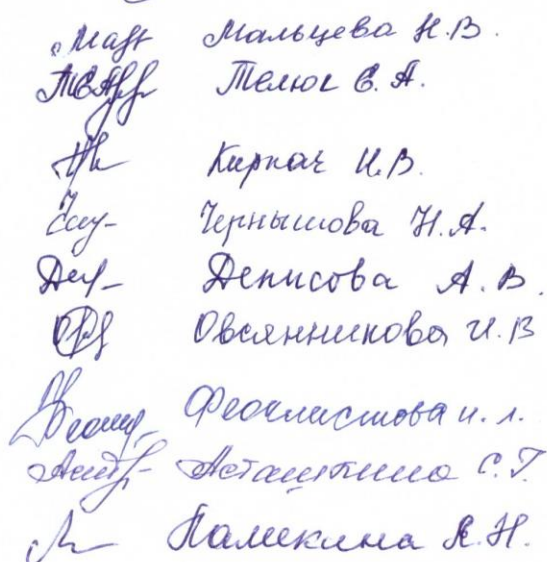 Мальцева Н.В.
Телюк Е.А.
Кирпач И.В.
Чернышова Н.А.
Денисова А.В.
Овсянникова И.В
Феоклистова и.л.
Асташкина С.Г.
Памекина Я.Н.